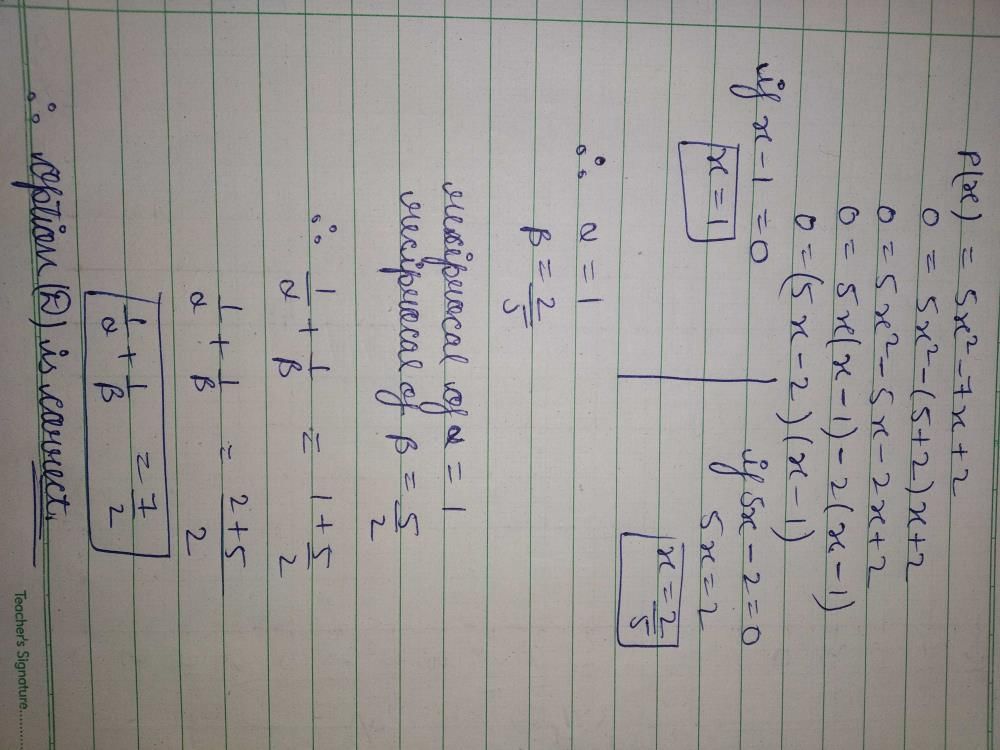 P(x) = 5x² - 7x + 2
0 = 5x² - (5+2)x + 2
0 = 5x² - 5x - 2x + 2
0 = 5x(x - 1) - 2(x - 1)
0 = (5x - 2)(x - 1)
if x - 1 = 0
x = 1
if 5x - 2 = 0
5x = 2
x = 2/5
∴ α = 1
β = 2/5
reciprocal of α = 1
reciprocal of β = 5/2
∴ 1/α + 1/β = 1 + 5/2
1/α + 1/β = 2+5/2
1/α + 1/β = 7/2
∴ option (D) is correct.
Teacher's Signature..........